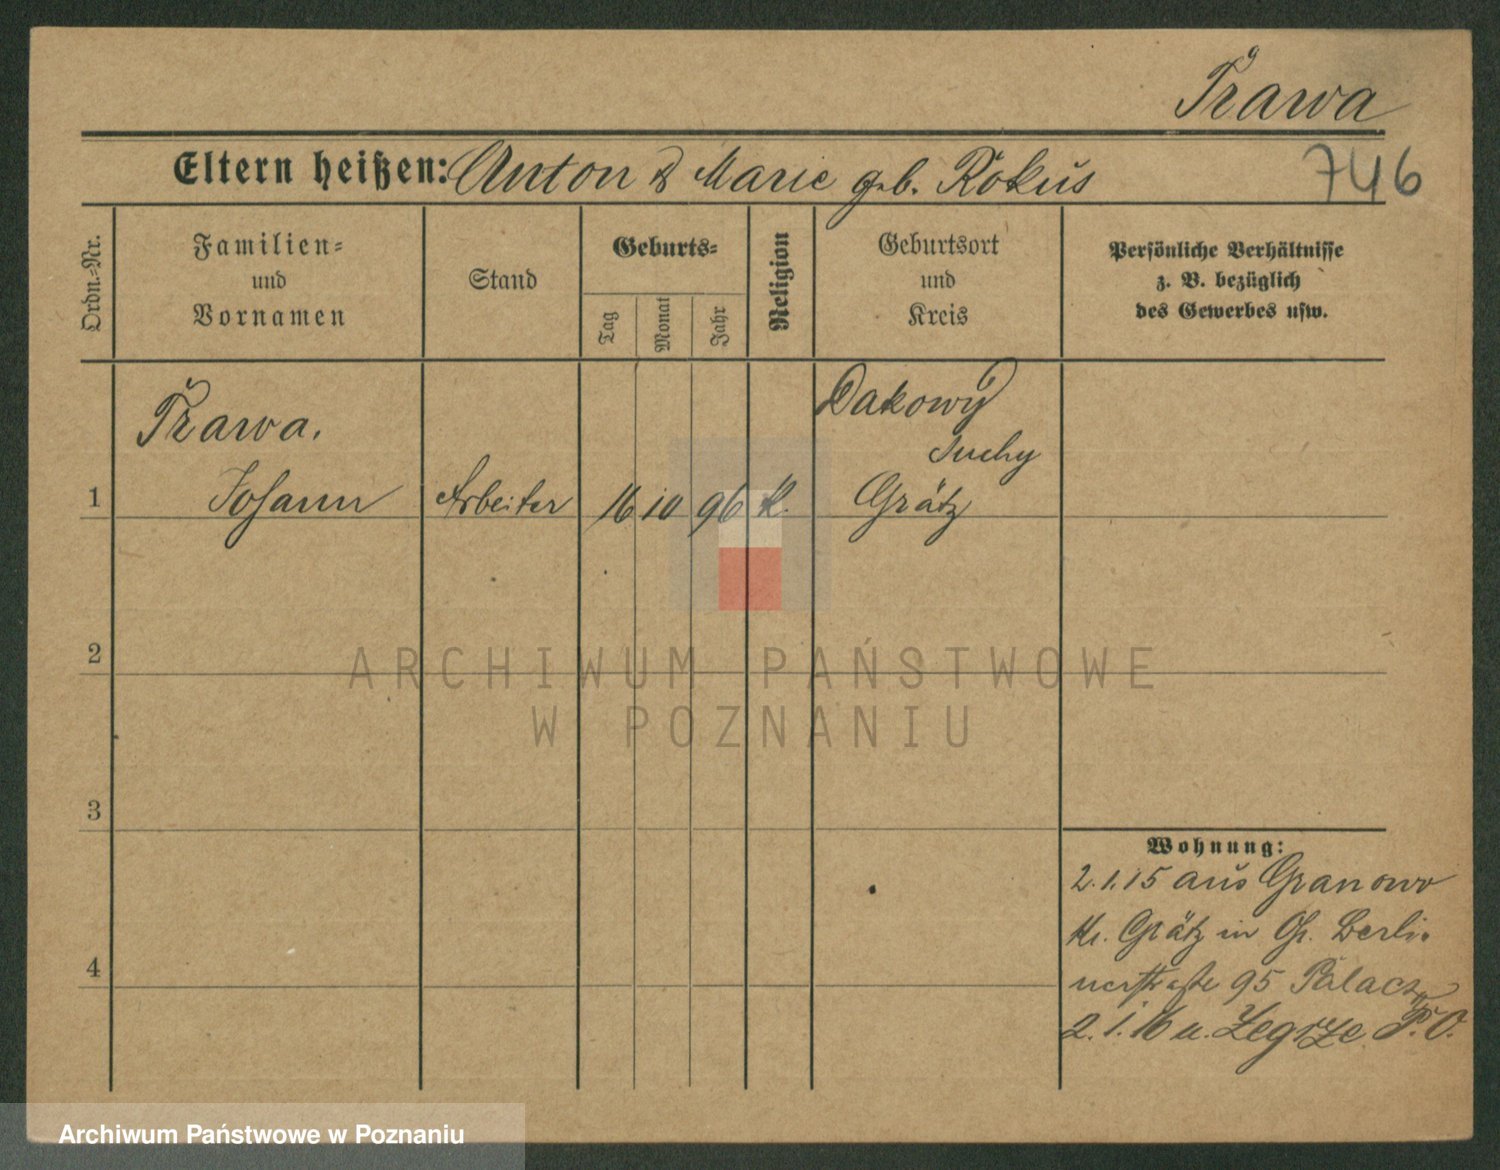 Trawa
Eltern heißen: Anton & Marie geb. Rokus
746
Ordn.-Nr.
Familien-
und
Vornamen
Stand
Geburts-
Tag
Monat
Jahr
Religion
Geburtsort
und
Kreis
Persönliche Verhältnisse
z. B. bezüglich
des Gewerbes usw.
Trawa.
Dakowy
suchy
1 Johann Arbeiter 16 10 96 K. Grätz
2
3
4
Wohnung:
2.1.15 aus Granowo
Kr. Grätz in Gr. Berli-
nerstraße 95 Palacz
2.1.16 n. Zegrze P.O.
ARCHIWUM PAŃSTWOWE
W POZNANIU
Archiwum Państwowe w Poznaniu